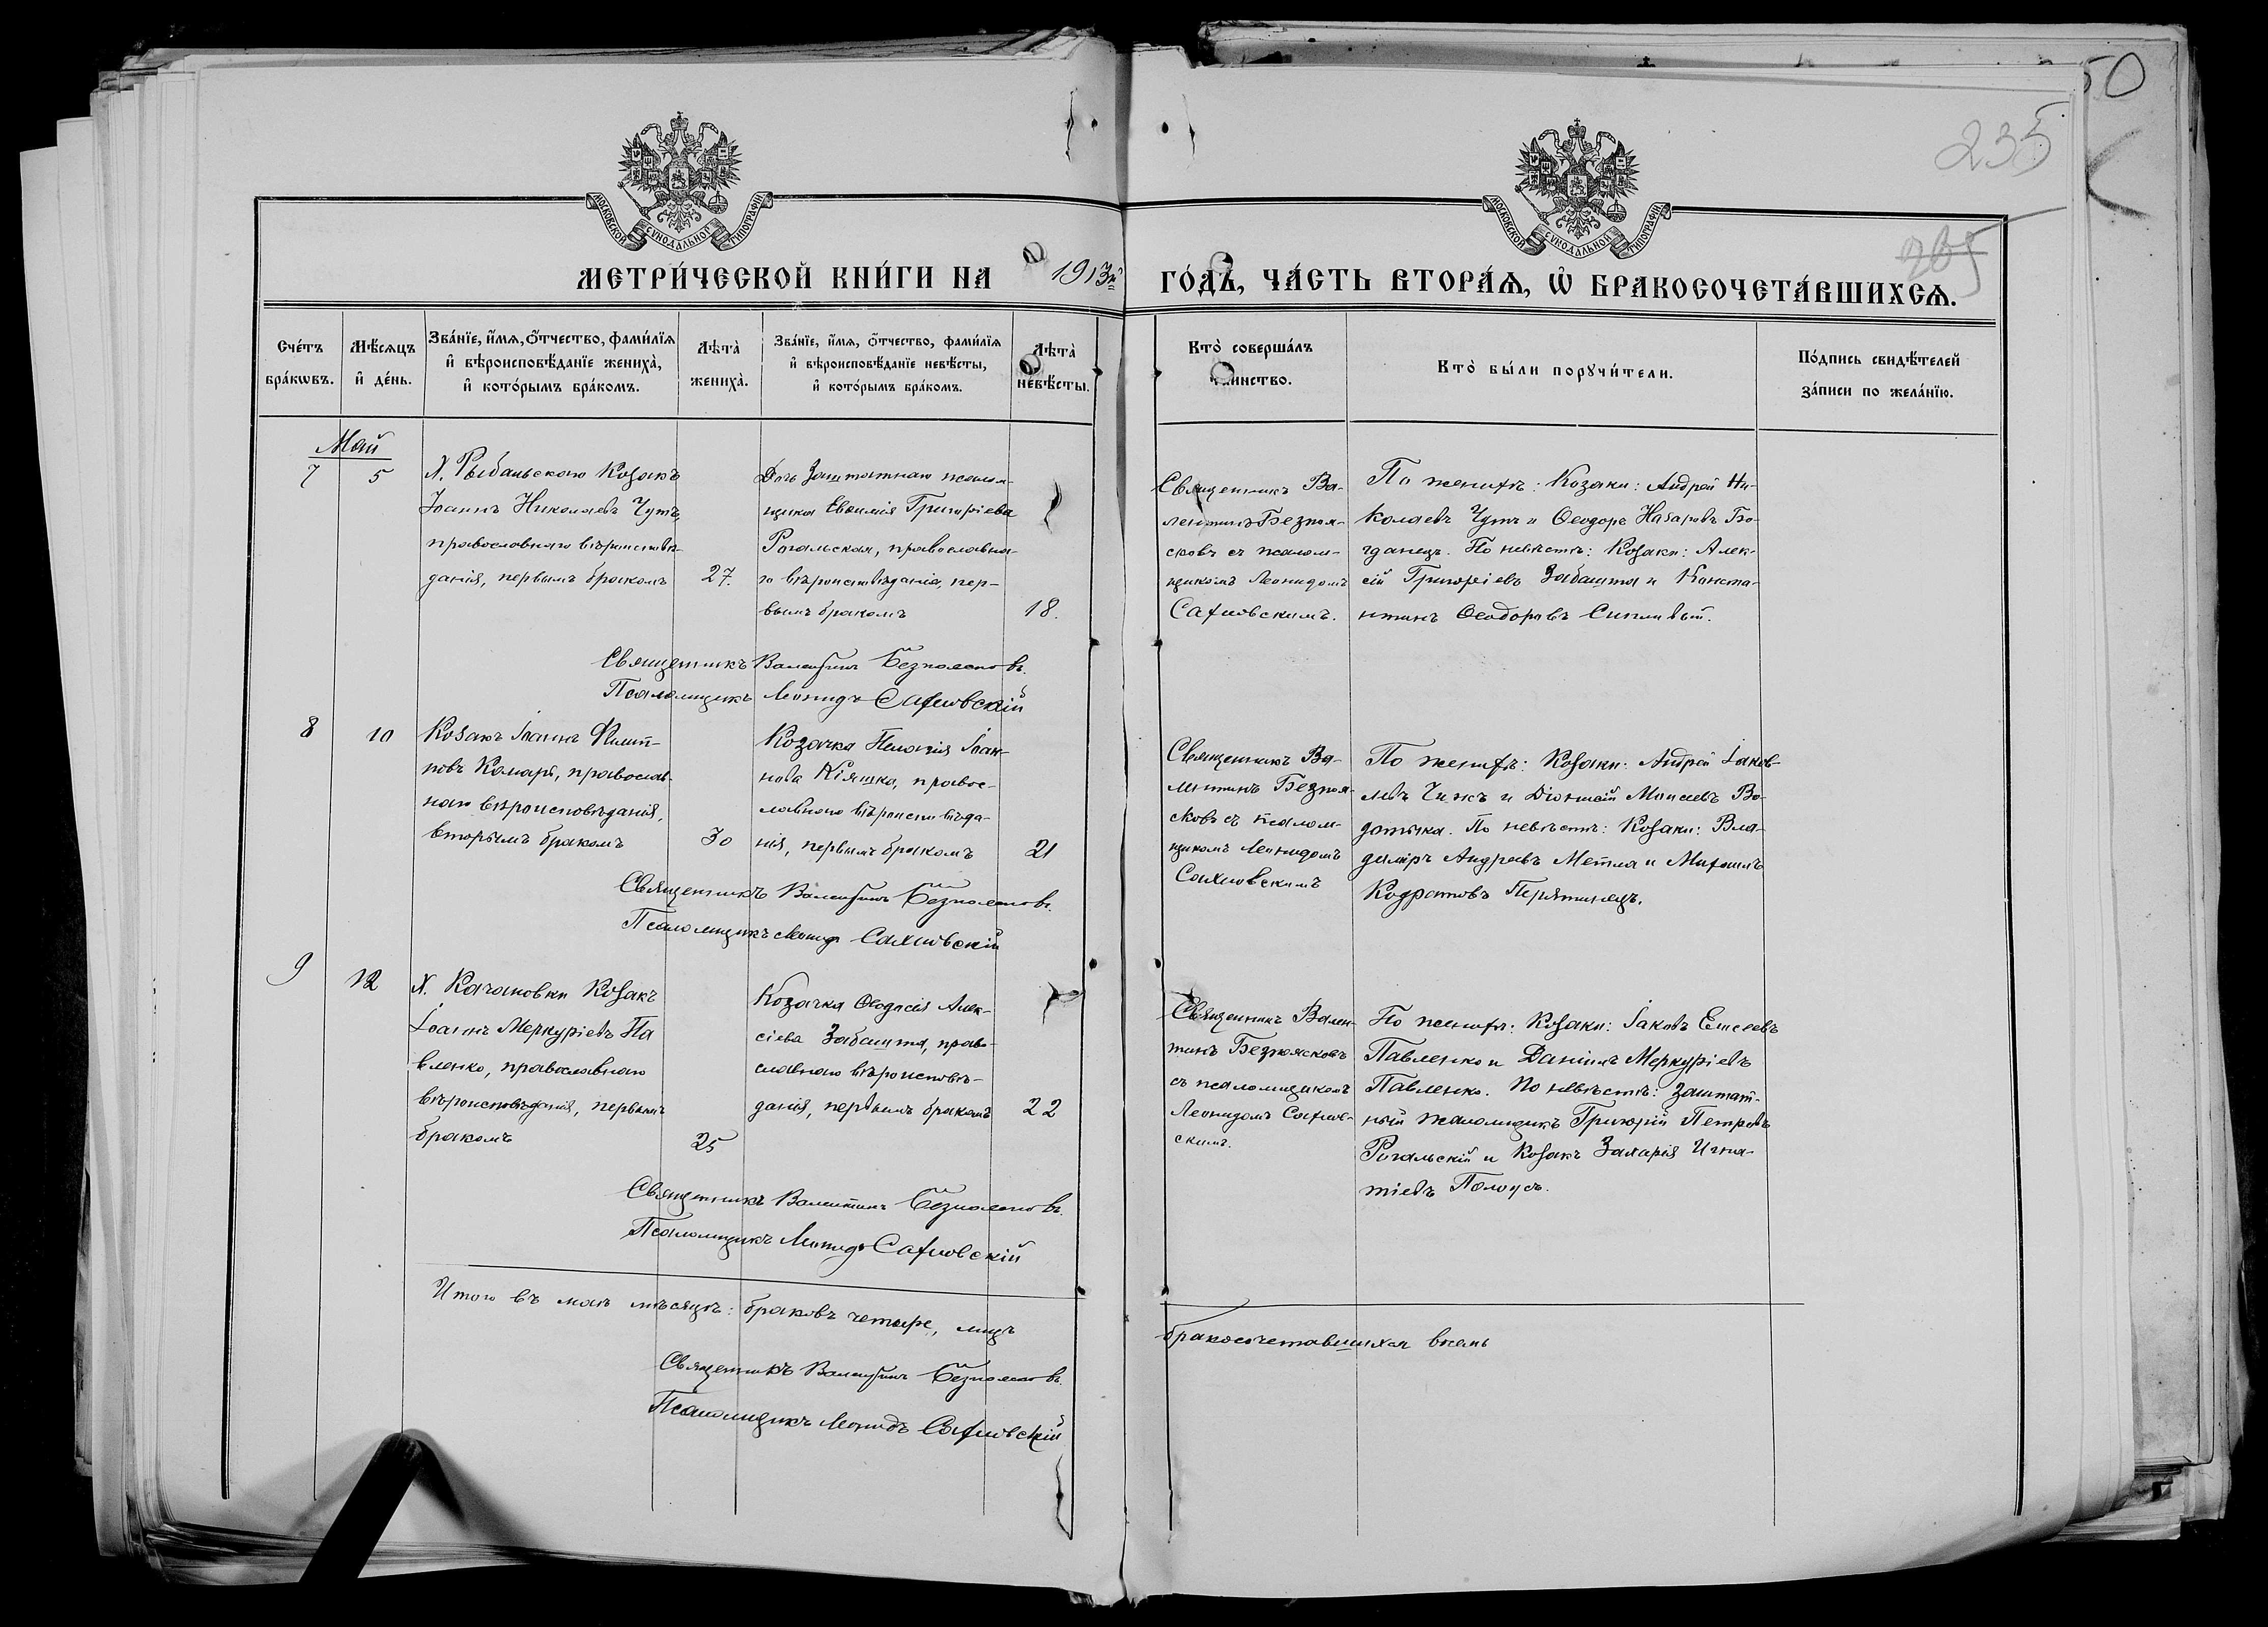 50
235
МОСКОВСКОЙ СѴНОДАЛЬНОЙ ТИПОГРАФІИ
МОСКОВСКОЙ СѴНОДАЛЬНОЙ ТИПОГРАФІИ
МЕТРИ́ЧЕСКОЙ КНИ́ГИ НА 1913й ГО́ДЪ, ЧА́СТЬ ВТОРА́Ѧ, Ѽ БРАКОСОЧЕТА́ВШИХСѦ.
Сче́тъ бра́кѡвъ.
Мѣ́сяцъ и҆ де́нь.
Зва́нїе, и҆́мѧ, ѻ҆́тчество, фами́лїѧ и҆ вѣроисповѣ́данїе жениха̀, и҆ кото́рымъ бра́комъ.
Лѣта̀ жениха̀.
Зва́нїе, и҆́мѧ, ѻ҆́тчество, фами́лїѧ и҆ вѣроисповѣ́данїе невѣ́сты, и҆ кото́рымъ бра́комъ.
Лѣта̀ невѣ́сты.
Кто̀ соверша́лъ таинство.
Кто̀ бы́ли порꙋчи́тели.
По́дпись свидѣ́телей за́писи по жела́нїю.
Май
7
5
Х. Рыбальскаго Козакъ
Іоаннъ Николаевъ Чутъ,
православнаго вѣроисповѣ-
данія, первымъ бракомъ
27.
Дочь Заштатнаго псалом-
щика Евѳимія Григоріева
Рогальская, православна-
го вѣроисповѣданія, пер-
вымъ бракомъ
18.
Священникъ Ва-
лентинъ Безпоя-
сковъ съ псалом-
щикомъ Леонидомъ
Сахновскимъ.
По женихѣ: Козаки: Андрей Ни-
колаевъ Чутъ и Ѳеодоръ Назаровъ Бо-
гданецъ. По невѣстѣ: Козаки: Алек-
сій Григоріевъ Забашта и Конста-
нтинъ Ѳеодоровъ Сипливый.
Священникъ Валентинъ Безпоясковъ.
Псаломщикъ Леонидъ Сахновскій
8
10
Козакъ Іоаннъ Филип-
повъ Комаръ, православ-
наго вѣроисповѣданія,
вторымъ бракомъ
30
Козачка Пелагія Іоан-
нова Кіяшко, правос-
лавнаго вѣроисповѣда-
нія, первымъ бракомъ
21
Священникъ Ва-
лентинъ Безпоя-
сковъ съ псалом-
щикомъ Леонидомъ
Сахновскимъ
По женихѣ: Козаки: Андрей Іаков-
левъ Чижъ и Діонисій Моисеевъ Во-
дотыка. По невѣстѣ: Козаки: Вла-
диміръ Андреевъ Метла и Михаилъ
Кодратовъ Перятинецъ.
Священникъ Валентинъ Безпоясковъ.
Псаломщикъ Леонидъ Сахновскій
9
12
Х. Качановки Козакъ
Іоаннъ Меркуріевъ Па
вленко, православнаго
вѣроисповѣданія, первымъ
бракомъ
25
Козачка Ѳеодосія Алек-
сіева Забашта, право-
славнаго вѣроисповѣ-
данія, первымъ бракомъ
22
Священникъ Вален-
тинъ Безпоясковъ
съ псаломщикомъ
Леонидомъ Сахнов-
скимъ.
По женихѣ: Козаки: Іаковъ Елисеевъ
Павленко и Даніилъ Меркуріевъ
Павленко. По невѣстѣ: Заштат-
ный псаломщикъ Григорій Петровъ
Рогальскій и Козакъ Захарія Игна-
тіевъ Полоусъ.
Священникъ Валентинъ Безпоясковъ.
Псаломщикъ Леонидъ Сахновскій
Итого въ маѣ мѣсяцѣ: браковъ четыре, лицъ бракосочетавшихся восемь
Священникъ Валентинъ Безпоясковъ.
Псаломщикъ Леонидъ Сахновскій